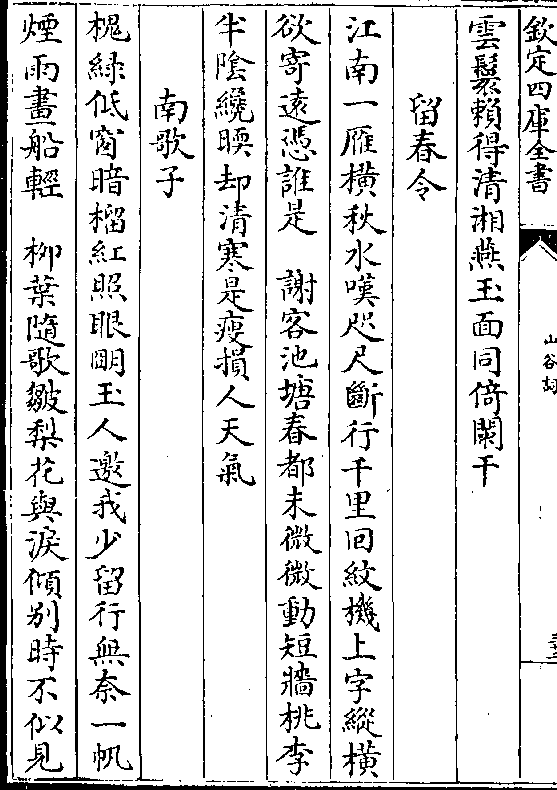 欽定四庫全書
山谷詞
雲鬟賴得清湘燕玉面同倚闌干
留春令
江南一雁橫秋水嘆咫尺斷行千里回紋機上字縱橫
欲寄遠憑誰是　謝客池塘春都未微微動短牆桃李
半陰纔暖却清寒是瘦損人天氣
南歌子
槐綠低窗暗榴紅照眼明玉人邀我少留行無奈一帆
煙雨畫船輕　柳葉隨歌皺梨花與淚傾别時不似見